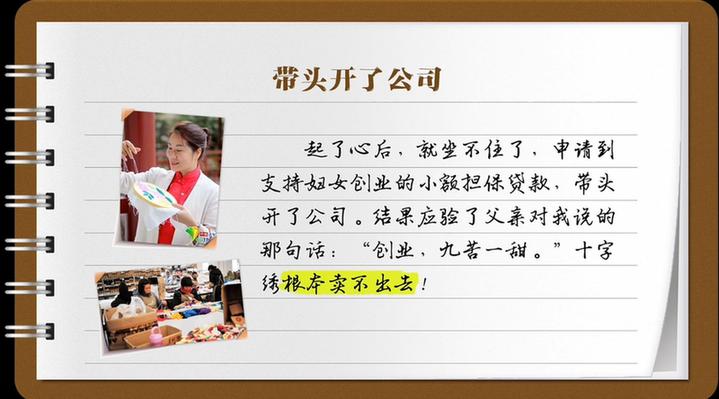 带头开了公司
起了心后，就坐不住了，申请到
支持妇女创业的小额担保贷款，带头
开了公司。结果应验了父亲对我说的
那句话：“创业，九苦一甜。”十字
绣根本卖不出去！